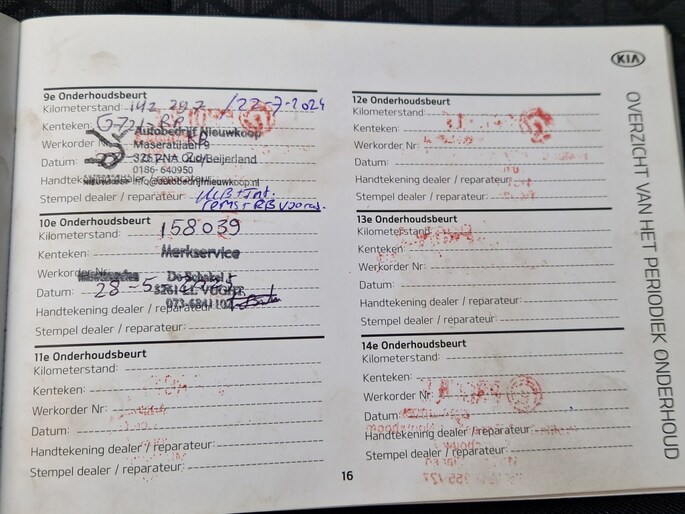 KIA
OVERZICHT VAN HET PERIODIEK ONDERHOUD
9e Onderhoudsbeurt
Kilometerstand: 142 297 / 22-7-2024
Kenteken: G-721-RR
Werkorder Nr:
Datum:
Handtekening dealer / reparateur:
Stempel dealer / reparateur:
Autobedrijf Nieuwkoop
Maseratilaan 9
Zuid-Beijerland
0186-640950
info@autobedrijfnieuwkoop.nl
10e Onderhoudsbeurt
Kilometerstand: 158039
Kenteken:
Werkorder Nr:
Datum: 28-5
Handtekening dealer / reparateur:
Stempel dealer / reparateur:
Merkservice
073-6841102
11e Onderhoudsbeurt
Kilometerstand:
Kenteken:
Werkorder Nr:
Datum:
Handtekening dealer / reparateur:
Stempel dealer / reparateur:
12e Onderhoudsbeurt
Kilometerstand:
Kenteken:
Werkorder Nr:
Datum:
Handtekening dealer / reparateur:
Stempel dealer / reparateur:
13e Onderhoudsbeurt
Kilometerstand:
Kenteken:
Werkorder Nr:
Datum:
Handtekening dealer / reparateur:
Stempel dealer / reparateur:
14e Onderhoudsbeurt
Kilometerstand:
Kenteken:
Werkorder Nr:
Datum:
Handtekening dealer / reparateur:
Stempel dealer / reparateur:
16